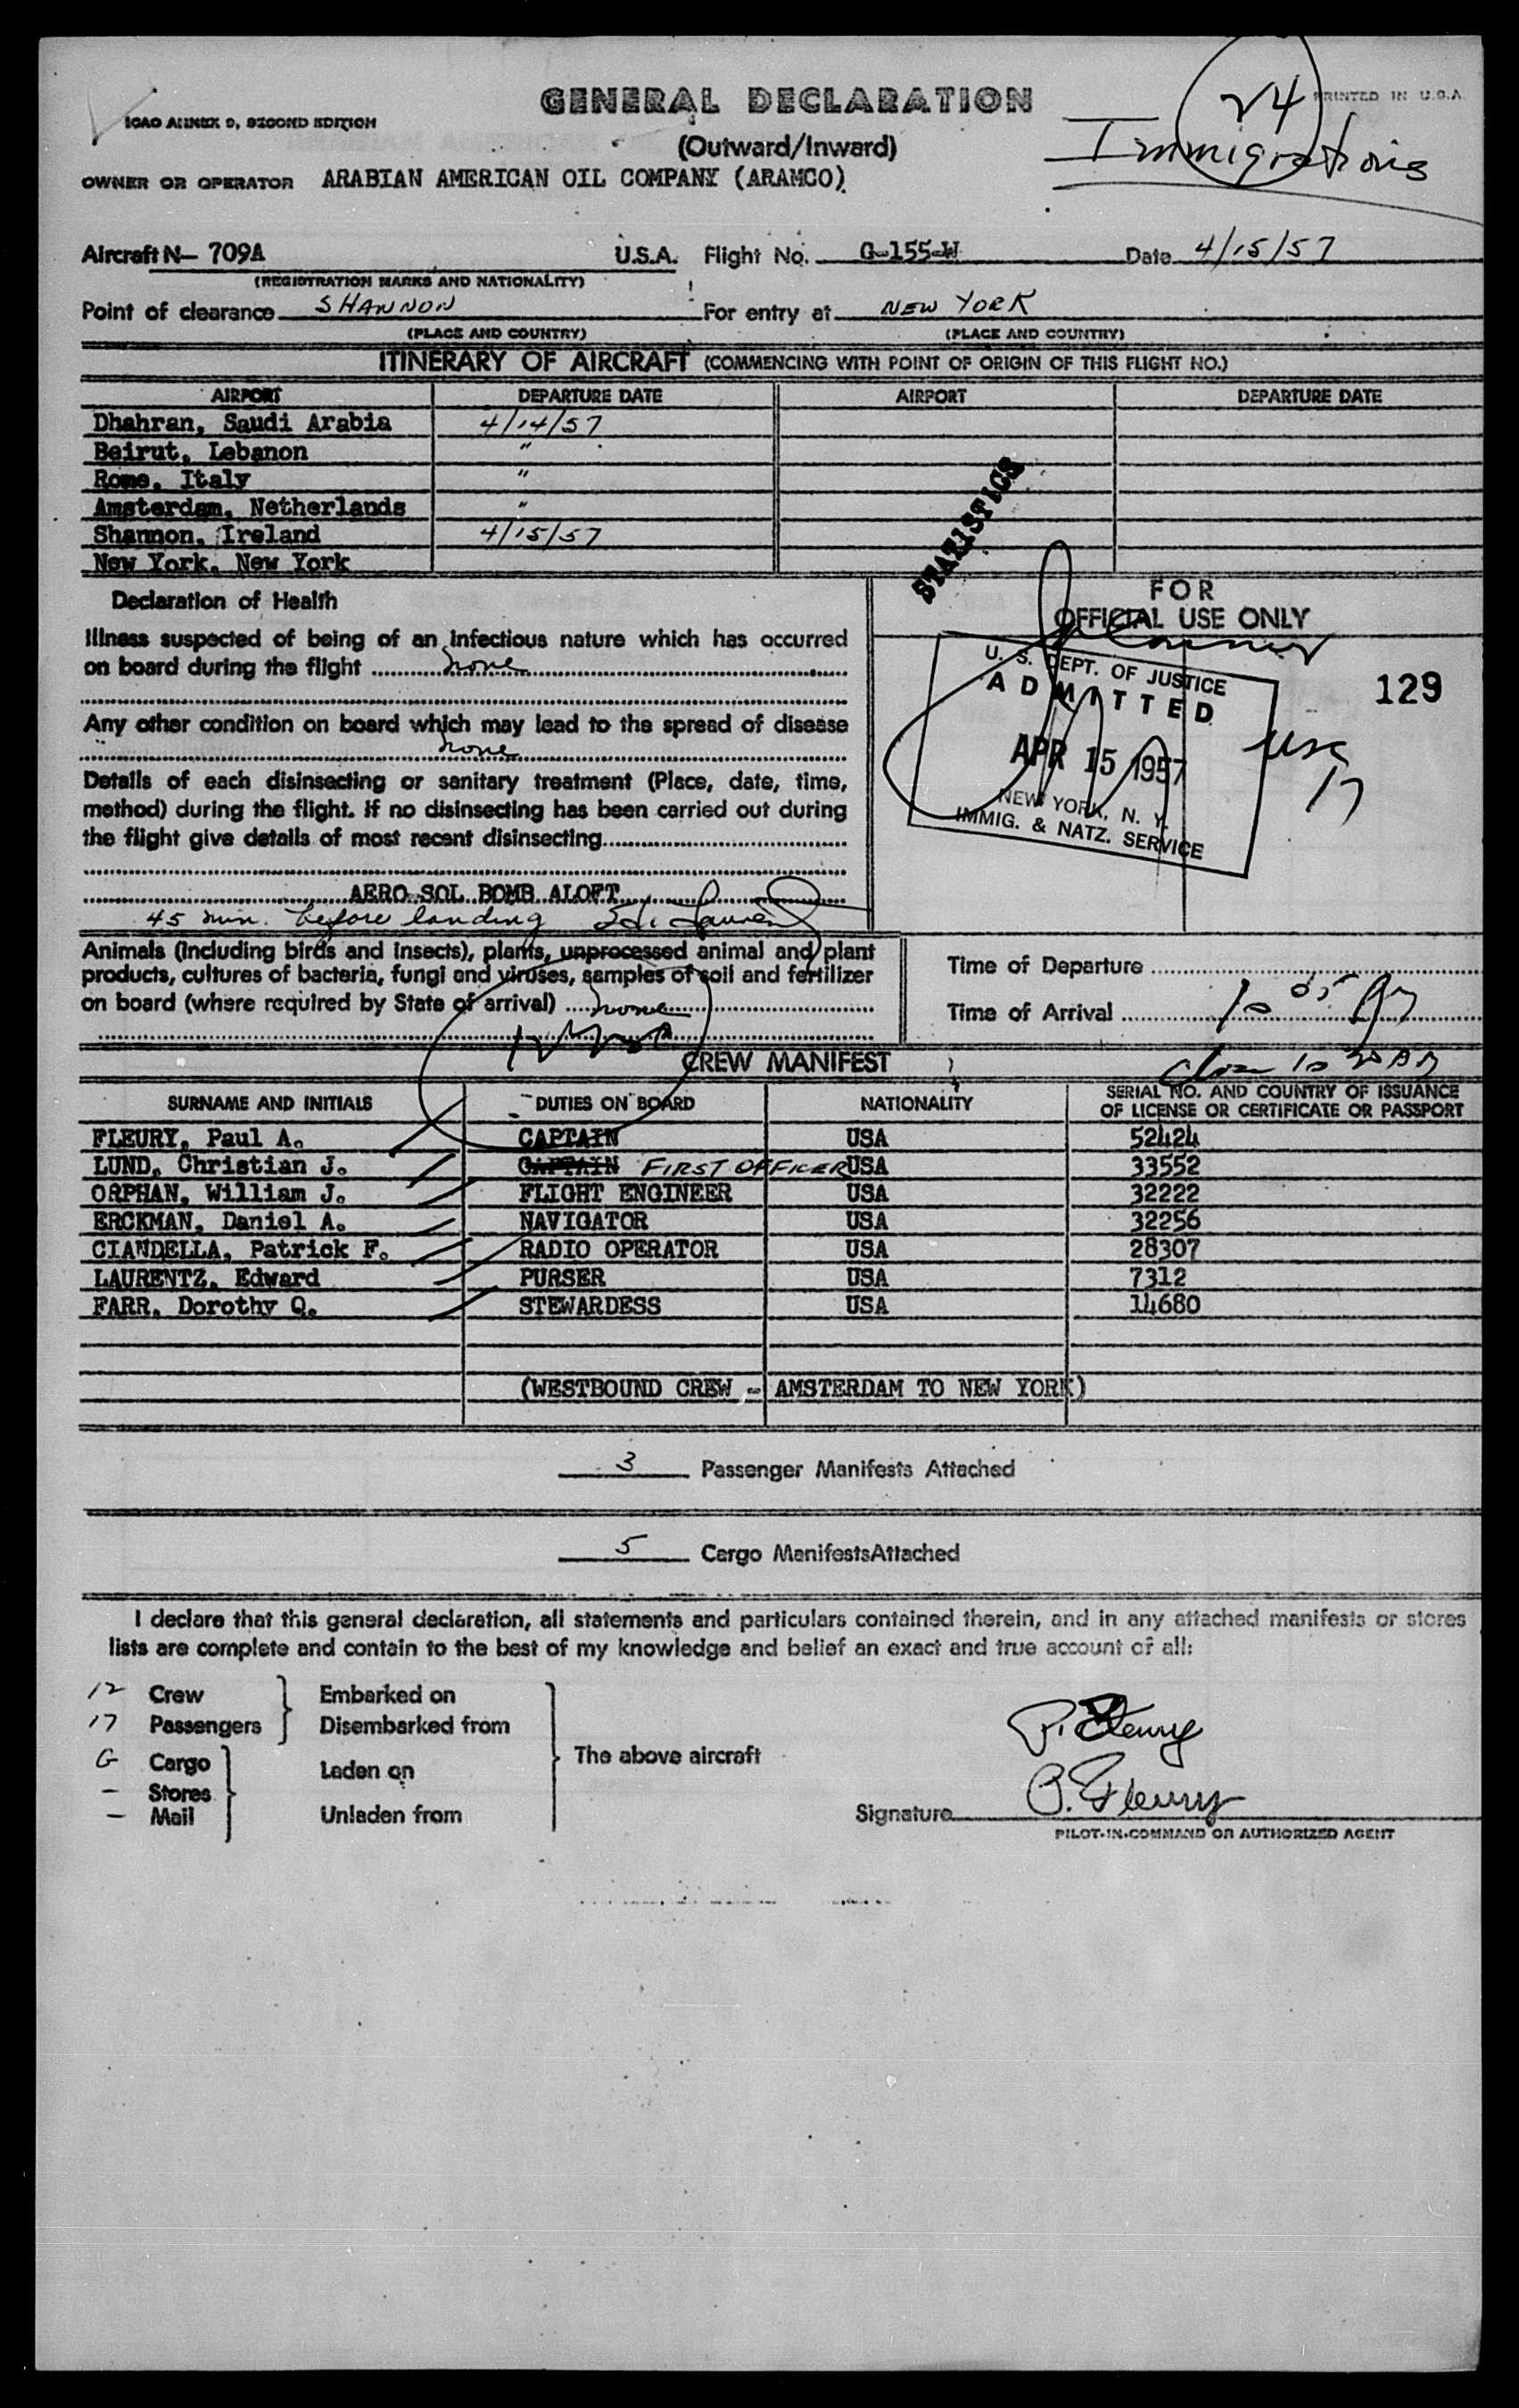 GENERAL DECLARATION
24
PRINTED IN U.S.A.
ICAO ANNEX 9, SECOND EDITION
(Outward/Inward)
Immigrations
OWNER OR OPERATOR ARABIAN AMERICAN OIL COMPANY (ARAMCO)
Aircraft N- 709A U.S.A. Flight No. G-155-W Date 4/15/57
(REGISTRATION MARKS AND NATIONALITY)
Point of clearance SHANNON For entry at NEW YORK
(PLACE AND COUNTRY) (PLACE AND COUNTRY)
ITINERARY OF AIRCRAFT (COMMENCING WITH POINT OF ORIGIN OF THIS FLIGHT NO.)
AIRPORT DEPARTURE DATE AIRPORT DEPARTURE DATE
Dhahran, Saudi Arabia 4/14/57
Beirut, Lebanon "
Rome, Italy "
Amsterdam, Netherlands "
Shannon, Ireland 4/15/57
New York, New York
STATISTICS
Declaration of Health
Illness suspected of being of an infectious nature which has occurred
on board during the flight none
Any other condition on board which may lead to the spread of disease
none
Details of each disinsecting or sanitary treatment (Place, date, time,
method) during the flight. If no disinsecting has been carried out during
the flight give details of most recent disinsecting
AERO SOL BOMB ALOFT
45 min. before landing
FOR
OFFICIAL USE ONLY
U. S. DEPT. OF JUSTICE
ADMITTED
APR 15 1957
NEW YORK, N. Y.
IMMIG. & NATZ. SERVICE
129
usc
17
Animals (including birds and insects), plants, unprocessed animal and plant
products, cultures of bacteria, fungi and viruses, samples of soil and fertilizer
on board (where required by State of arrival) none
Time of Departure
Time of Arrival 10 05
CREW MANIFEST
SURNAME AND INITIALS DUTIES ON BOARD NATIONALITY SERIAL NO. AND COUNTRY OF ISSUANCE
OF LICENSE OR CERTIFICATE OR PASSPORT
FLEURY, Paul A. CAPTAIN USA 52424
LUND, Christian J. CAPTAIN FIRST OFFICER USA 33552
ORPHAN, William J. FLIGHT ENGINEER USA 32222
ERCKMAN, Daniel A. NAVIGATOR USA 32256
CIANDELLA, Patrick F. RADIO OPERATOR USA 28307
LAURENTZ, Edward PURSER USA 7312
FARR, Dorothy Q. STEWARDESS USA 14680
(WESTBOUND CREW - AMSTERDAM TO NEW YORK)
3 Passenger Manifests Attached
5 Cargo Manifests Attached
I declare that this general declaration, all statements and particulars contained therein, and in any attached manifests or stores
lists are complete and contain to the best of my knowledge and belief an exact and true account of all:
12 Crew Embarked on
17 Passengers Disembarked from
G Cargo Laden on
The above aircraft
- Stores
- Mail Unladen from
P. Fleury
Signature P. Fleury
PILOT-IN-COMMAND OR AUTHORIZED AGENT